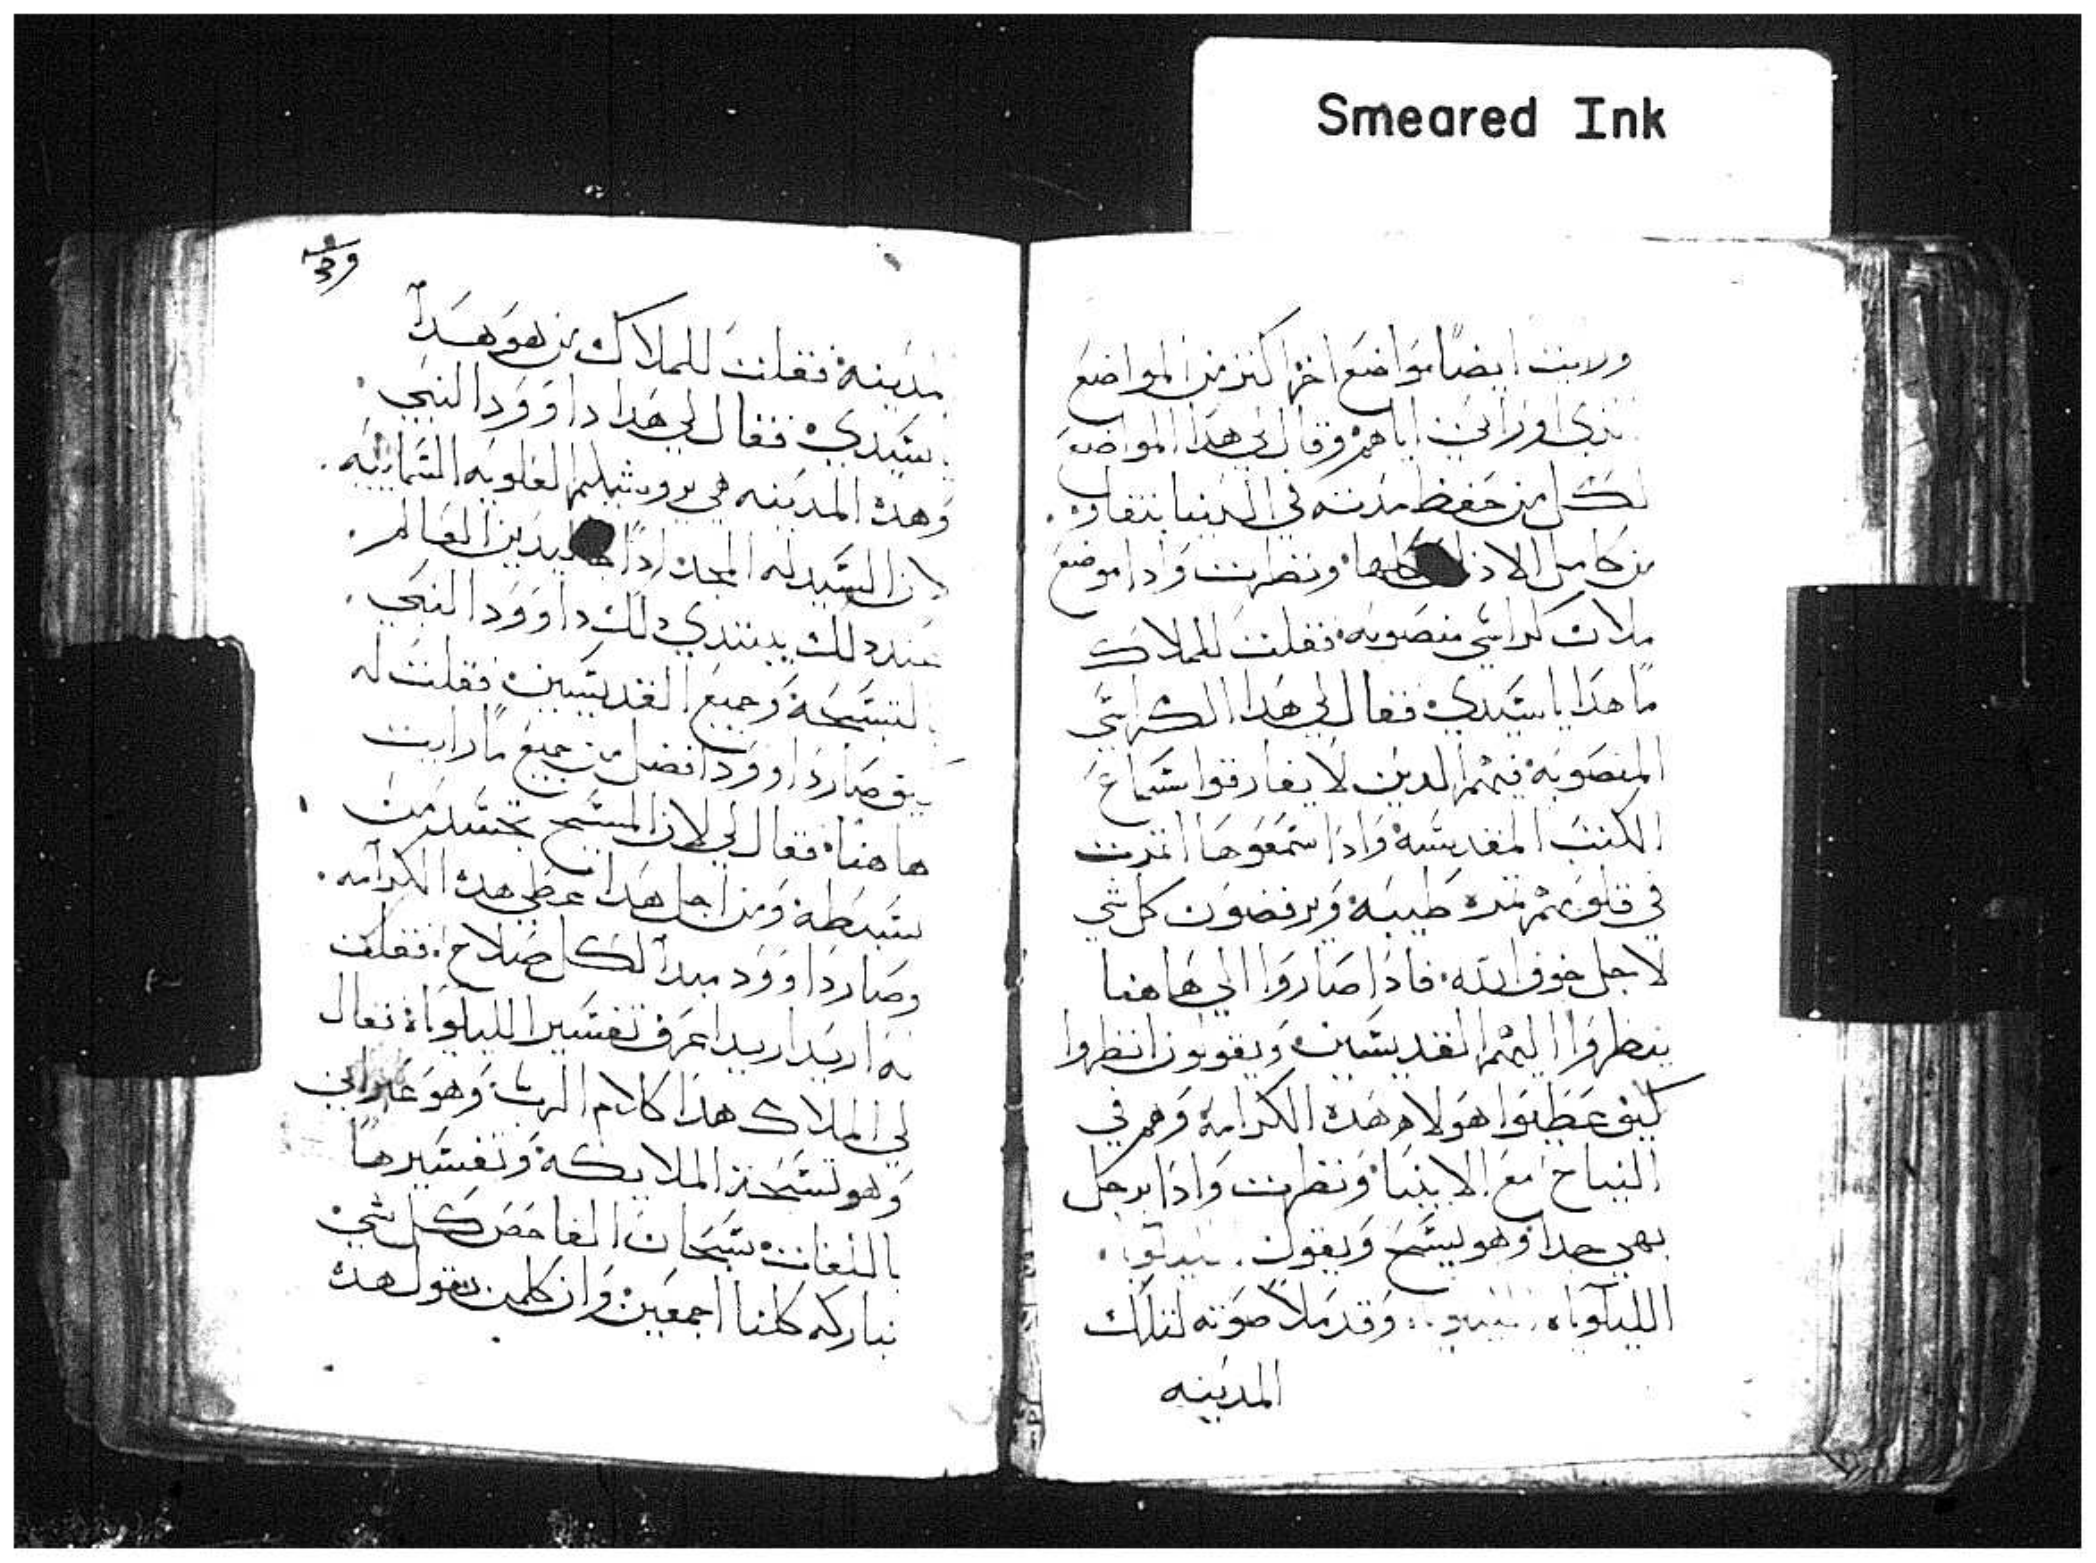 Smeared Ink
ورايت ايضًا مواضع اخر اكثر من المواضع
اوراني اياهم وقال لي هدا المواضع
لكل من حفظ مدنته في الدينا بنقاوه.
من كامل كلها ونظرت وادا موضع
ملان كراسي منصوبه فقلت للملاك
ما هدا يا سيدي فقال لي هدا الكراسي
المنصوبه فهم الدين لا يفارقوا سماع
الكتب المقدسه وادا سمعوها اتمرت
في قلوبهم تمره طيبه ويرفضون كل شي
لاجل خوف الله. فادا صاروا الي هاهنا
ينظروا اليهم القديسين ويقولون انظروا
كيف عطيوا هولاء هده الكرامه وهم في
النياح مع الانبيا ونظرت وادا برجل
بهي جدا وهو يسبح ويقول
الليلوياه وقد ملا صوته لتلك
المدينه
مدينه فقلت للملاك من هو هدا
يسيدي فقال لي هدا داوود النبي.
وهده المدينه هي يروشيليم العلويه السمائيه.
لان السيد له المجد ادا يدين العالم.
عند دلك يبتدي دلك داوود النبي.
التسبحه وجميع القديسين فقلت له
كيف صار داوود افضل من جميع ما رايت
هاهنا فقال لي لان المسيح تجسد من
سبطه ومن اجل هدا عطي هده الكرامه.
وصار داوود مبدا لكل صلاح. فقلت
له اريد اريد اعرف تفسير الليلوياه فقال
لي الملاك هدا كلام الرب وهو عبراني
وهو تسبحة الملايكه وتفسيرها
باللغات سبحان الفاحص كل شي
نباركه كلنا اجمعين وان كلمن يقول هده